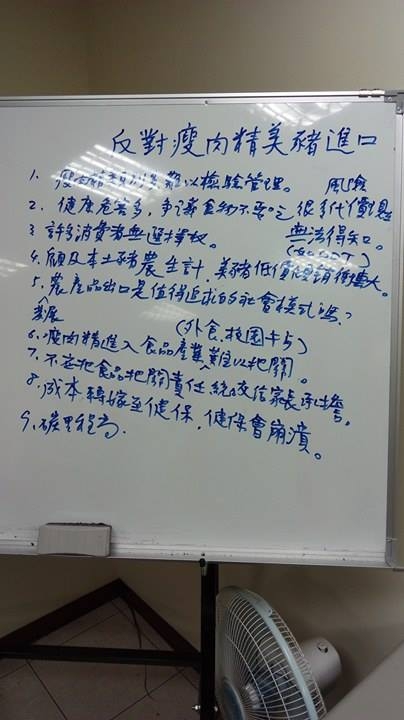 反對瘦肉精美豬進口
1. 瘦肉精種類多難以檢驗管理。 風險
2. 健康危害多,爭議食物不要吃 很多代價、隱
3. 許多消費者無選擇權。 無法得知。
4. 顧及本土豬農生計,美豬低價傾銷衝擊大。
5. 農產品出口是值得追求的社會模式嗎?
發展
(外食、校園午占)
6. 瘦肉精進入食品產業難以把關。
7. 不應把食品把關責任統交給家長承擔。
8. 成本轉嫁至健保,健保會崩潰。
9. 碳里程高.